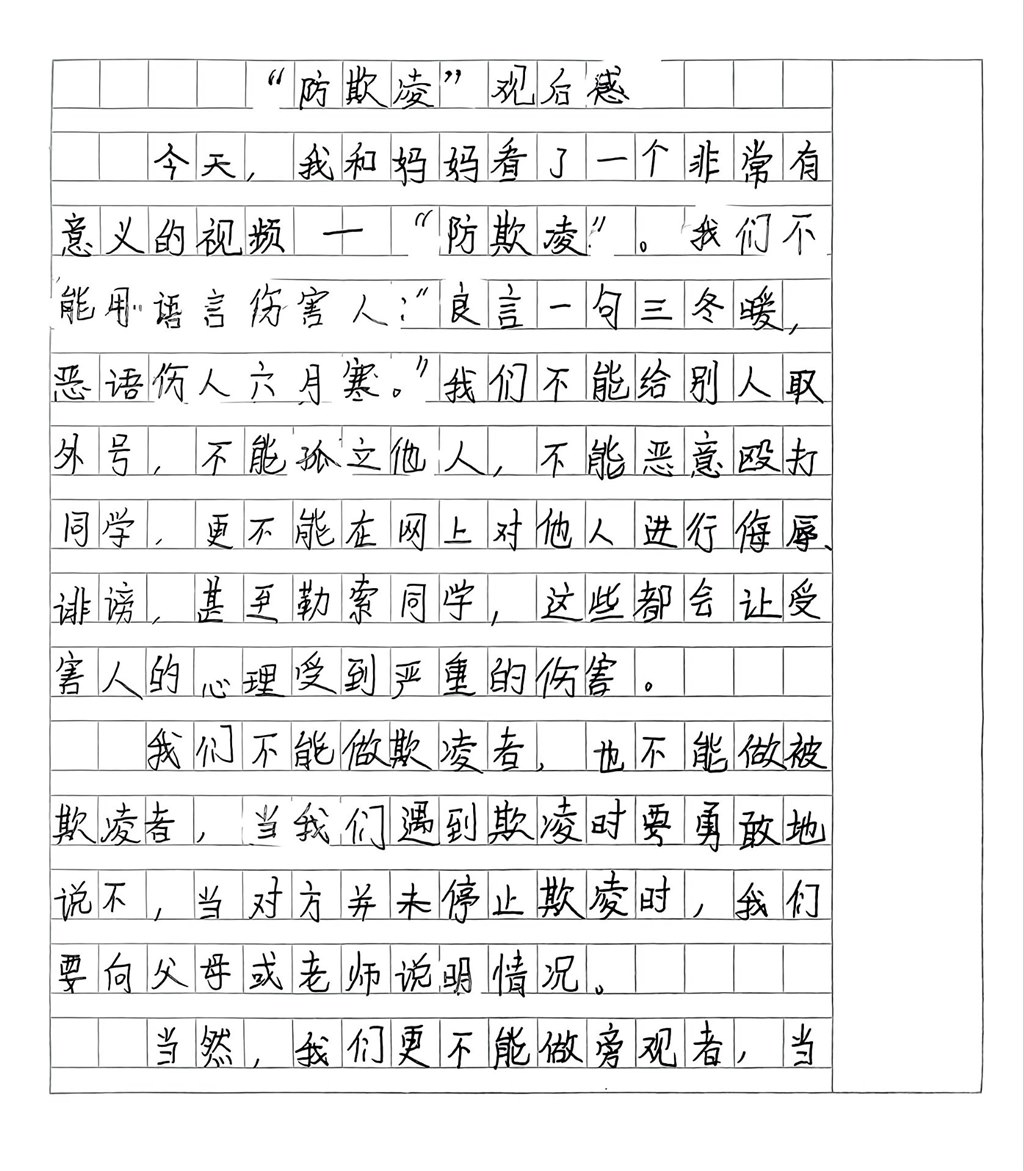 “防欺凌”观后感
今天，我和妈妈看了一个非常有
意义的视频 — “防欺凌”。我们不
能用语言伤害人：“良言一句三冬暖，
恶语伤人六月寒。”我们不能给别人取
外号，不能孤立他人，不能恶意殴打
同学，更不能在网上对他人进行侮辱、
诽谤，甚至勒索同学，这些都会让受
害人的心理受到严重的伤害。
我们不能做欺凌者，也不能做被
欺凌者，当我们遇到欺凌时要勇敢地
说不，当对方并未停止欺凌时，我们
要向父母或老师说明情况。
当然，我们更不能做旁观者，当